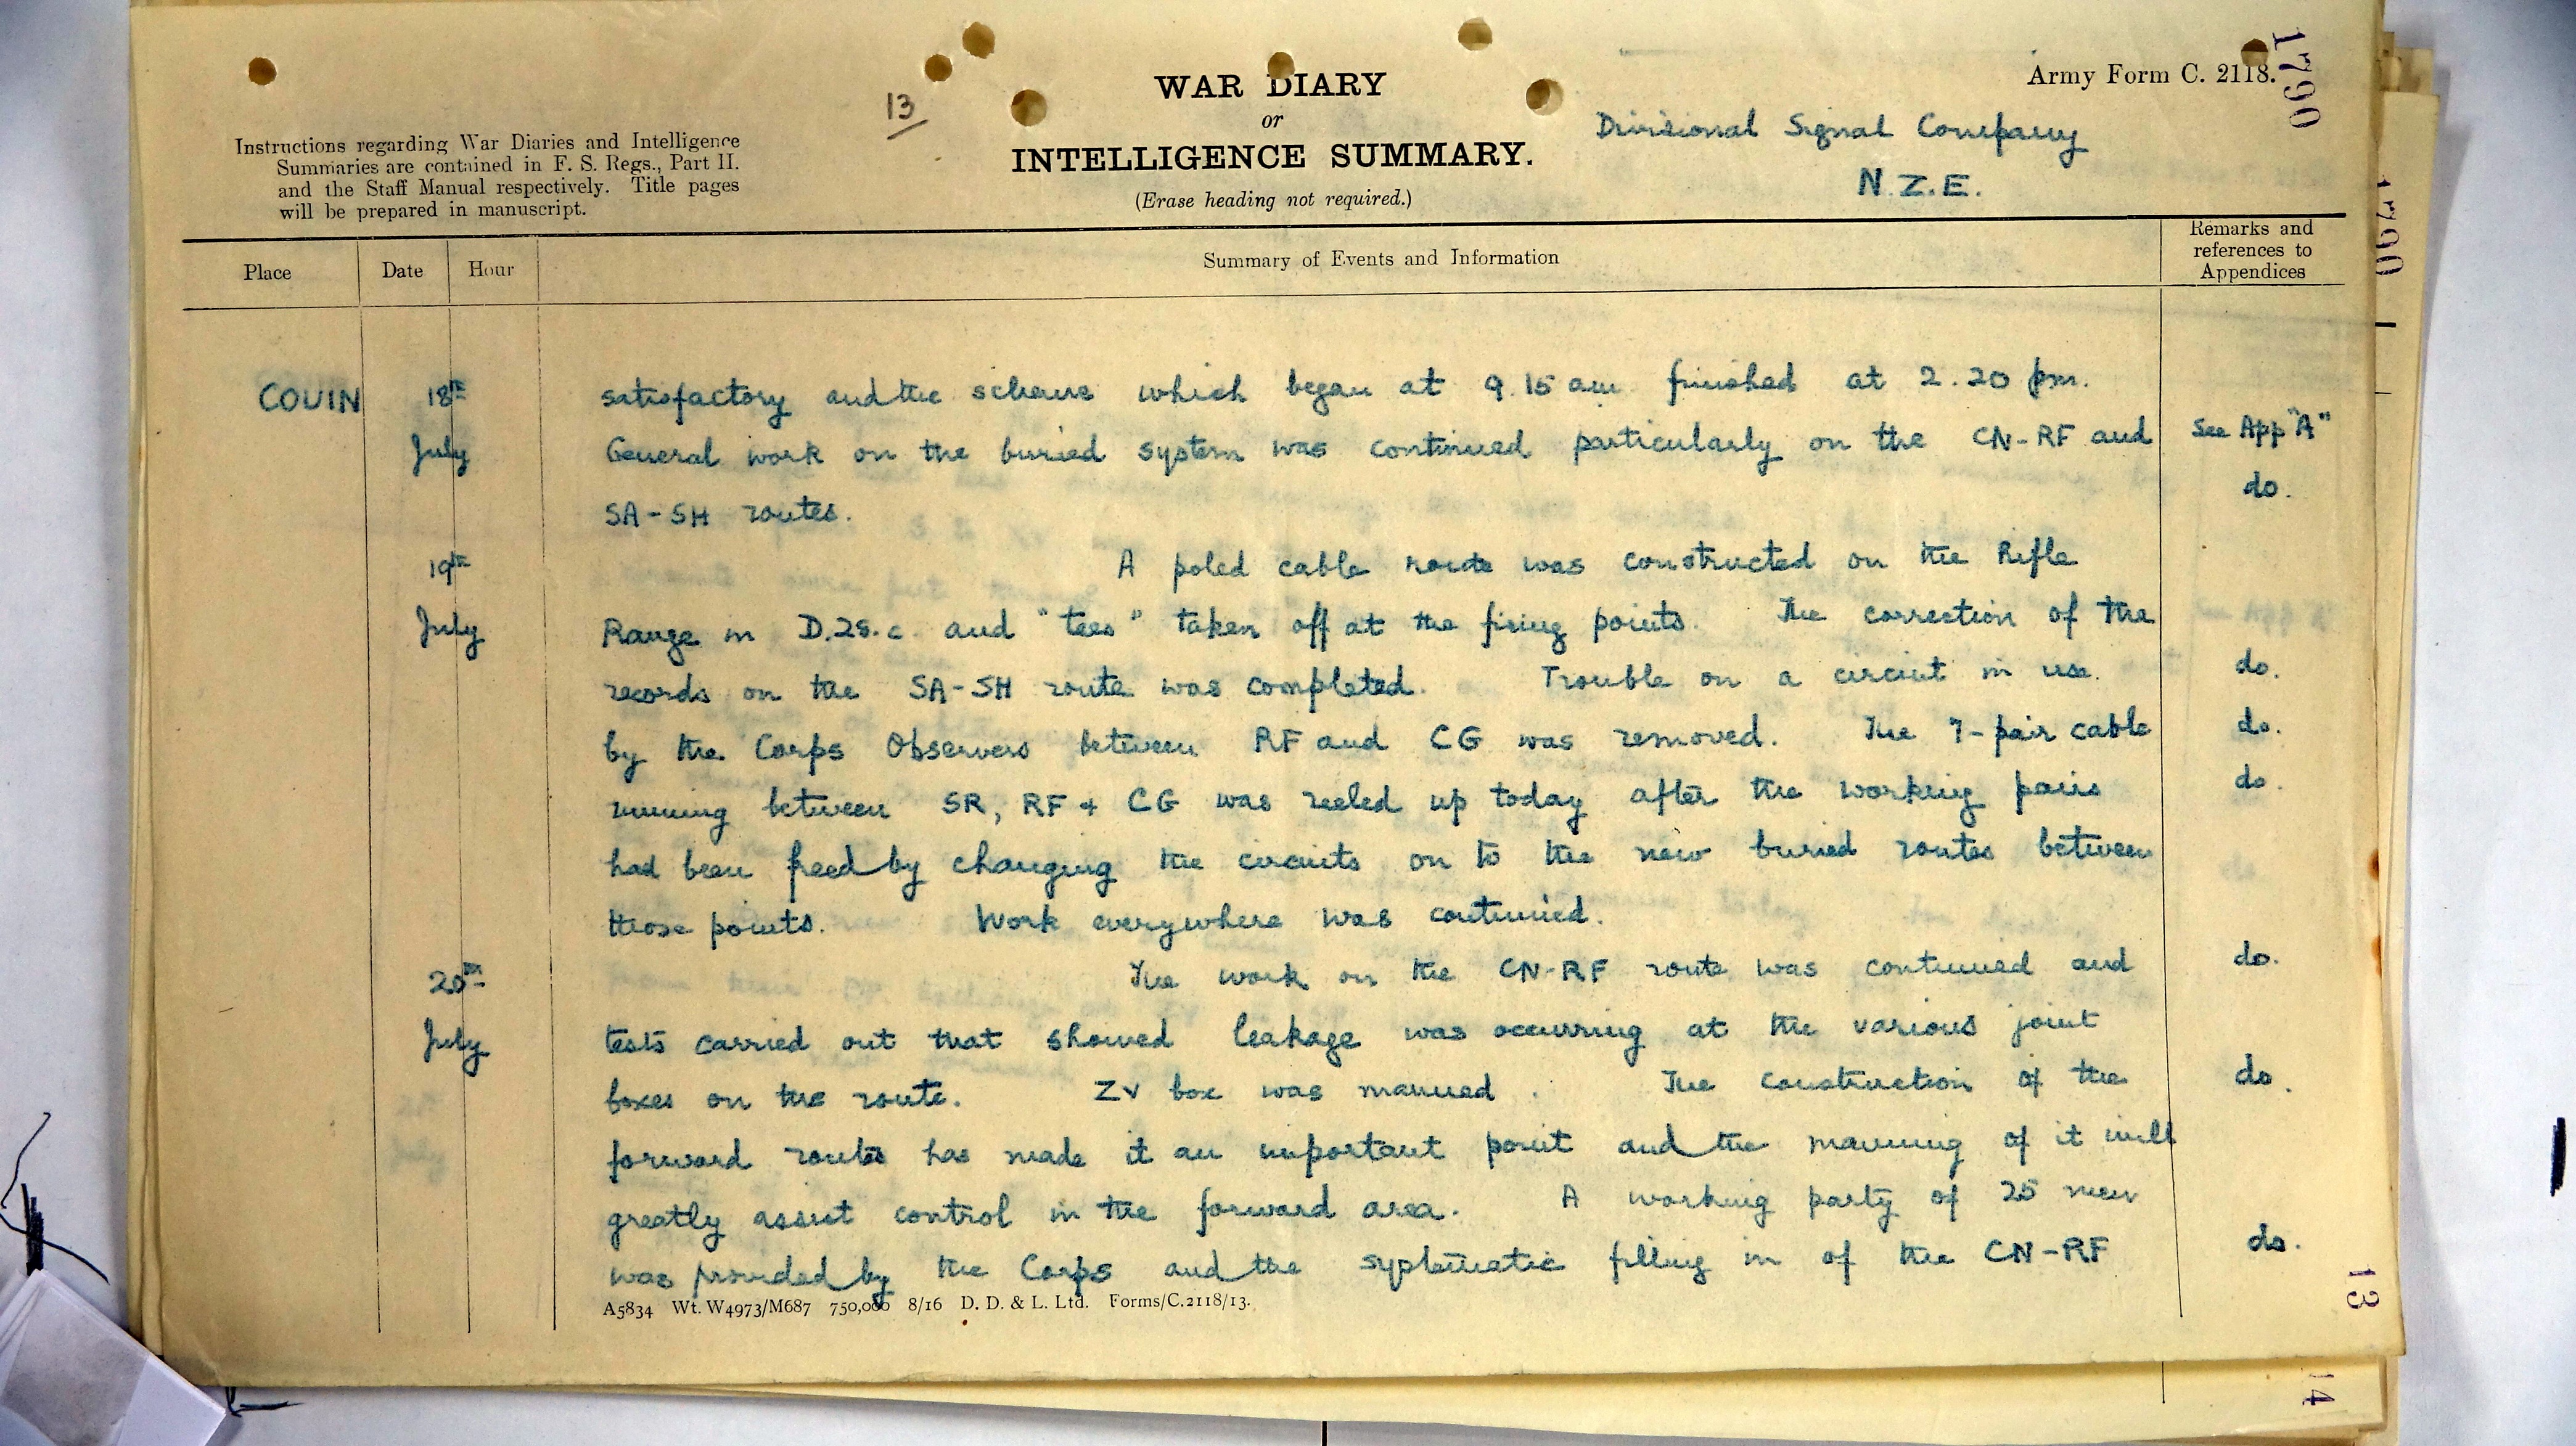 1790
Army Form C. 2118.
13
WAR DIARY
or
INTELLIGENCE SUMMARY.
(Erase heading not required.)
Instructions regarding War Diaries and Intelligence
Summaries are contained in F. S. Regs., Part II.
and the Staff Manual respectively. Title pages
will be prepared in manuscript.
Divisional Signal Company
N.Z.E.
Place Date Hour Summary of Events and Information Remarks and
references to
Appendices
COUIN 18th satisfactory and the scheme which began at 9.15 am finished at 2.20 pm.
July General work on the buried system was continued particularly on the CN-RF and See App "A"
SA-SH routes. do.
19th A poled cable route was constructed on the Rifle
July Range in D.28.c. and "tees" taken off at the firing points. The correction of the
records on the SA-SH route was completed. Trouble on a circuit in use do.
by the Corps Observers between RF and CG was removed. The 7-pair cable do.
running between SR, RF + CG was reeled up today after the working pairs do.
had been freed by changing the circuits on to the new buried routes between
those points. Work everywhere was continued.
20th The work on the CN-RF route was continued and do.
July tests carried out that showed leakage was occurring at the various joint
boxes on the route. ZV box was manned. The construction of the do.
forward routes has made it an important point and the manning of it will
greatly assist control in the forward area. A working party of 25 men
was provided by the Corps and the systematic filling in of the CN-RF do.
A5834 Wt. W4973/M687 750,000 8/16 D. D. & L. Ltd. Forms/C.2118/13.
13
1790
14